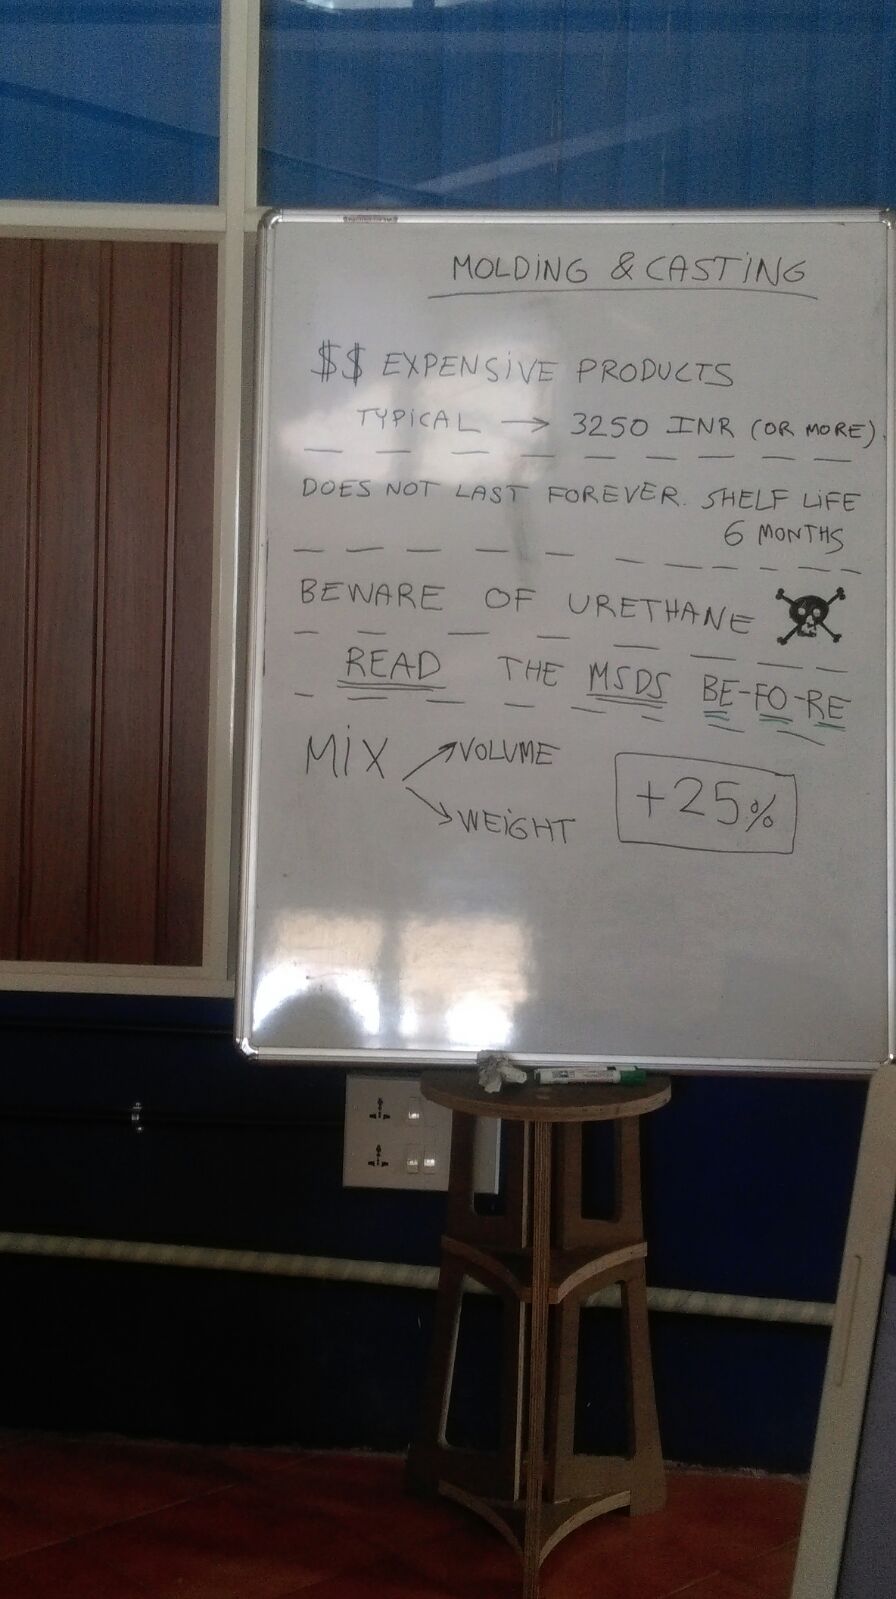 MOLDING & CASTING
$$ EXPENSIVE PRODUCTS
TYPICAL → 3250 INR (OR MORE).
DOES NOT LAST FOREVER. SHELF LIFE
6 MONTHS
BEWARE OF URETHANE
READ THE MSDS BE-FO-RE
MIX VOLUME
WEIGHT
+25%